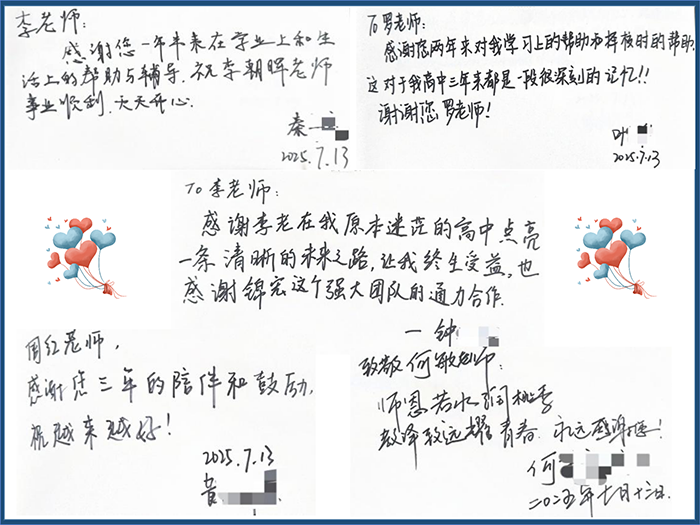 李老师：
感谢您一年半来在学业上和生
活上的帮助与辅导.祝李朝晖老师
事业顺利.天天开心.
秦一
2025.7.13
To罗老师：
感谢您两年来对我学习上的帮助和择校时的帮助.
这对于我高中三年来都是一段很深刻的记忆!!
谢谢您罗老师!
叶
2025.7.13
To 李老师：
感谢李老在我原本迷茫的高中点亮
一条清晰的未来之路,让我终生受益,也
感谢锦宏这个强大团队的通力合作.
一钟
周红老师,
感谢您三年的陪伴和鼓励,
祝越来越好!
2025.7.13
致敬何敏老师：
师恩若水润桃李
教泽致远耀青春.永远感谢您!
何
二〇二五年七月十三日.